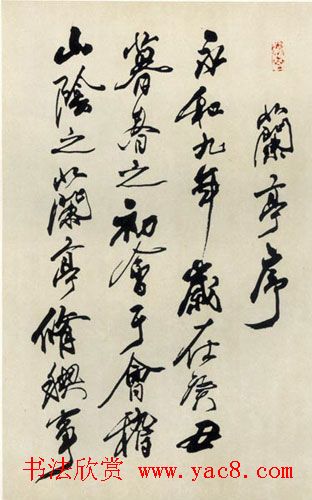 蘭亭序
永和九年歲在癸丑
暮春之初會于會稽
山陰之蘭亭脩禊事
书法欣赏 www.yac8.com